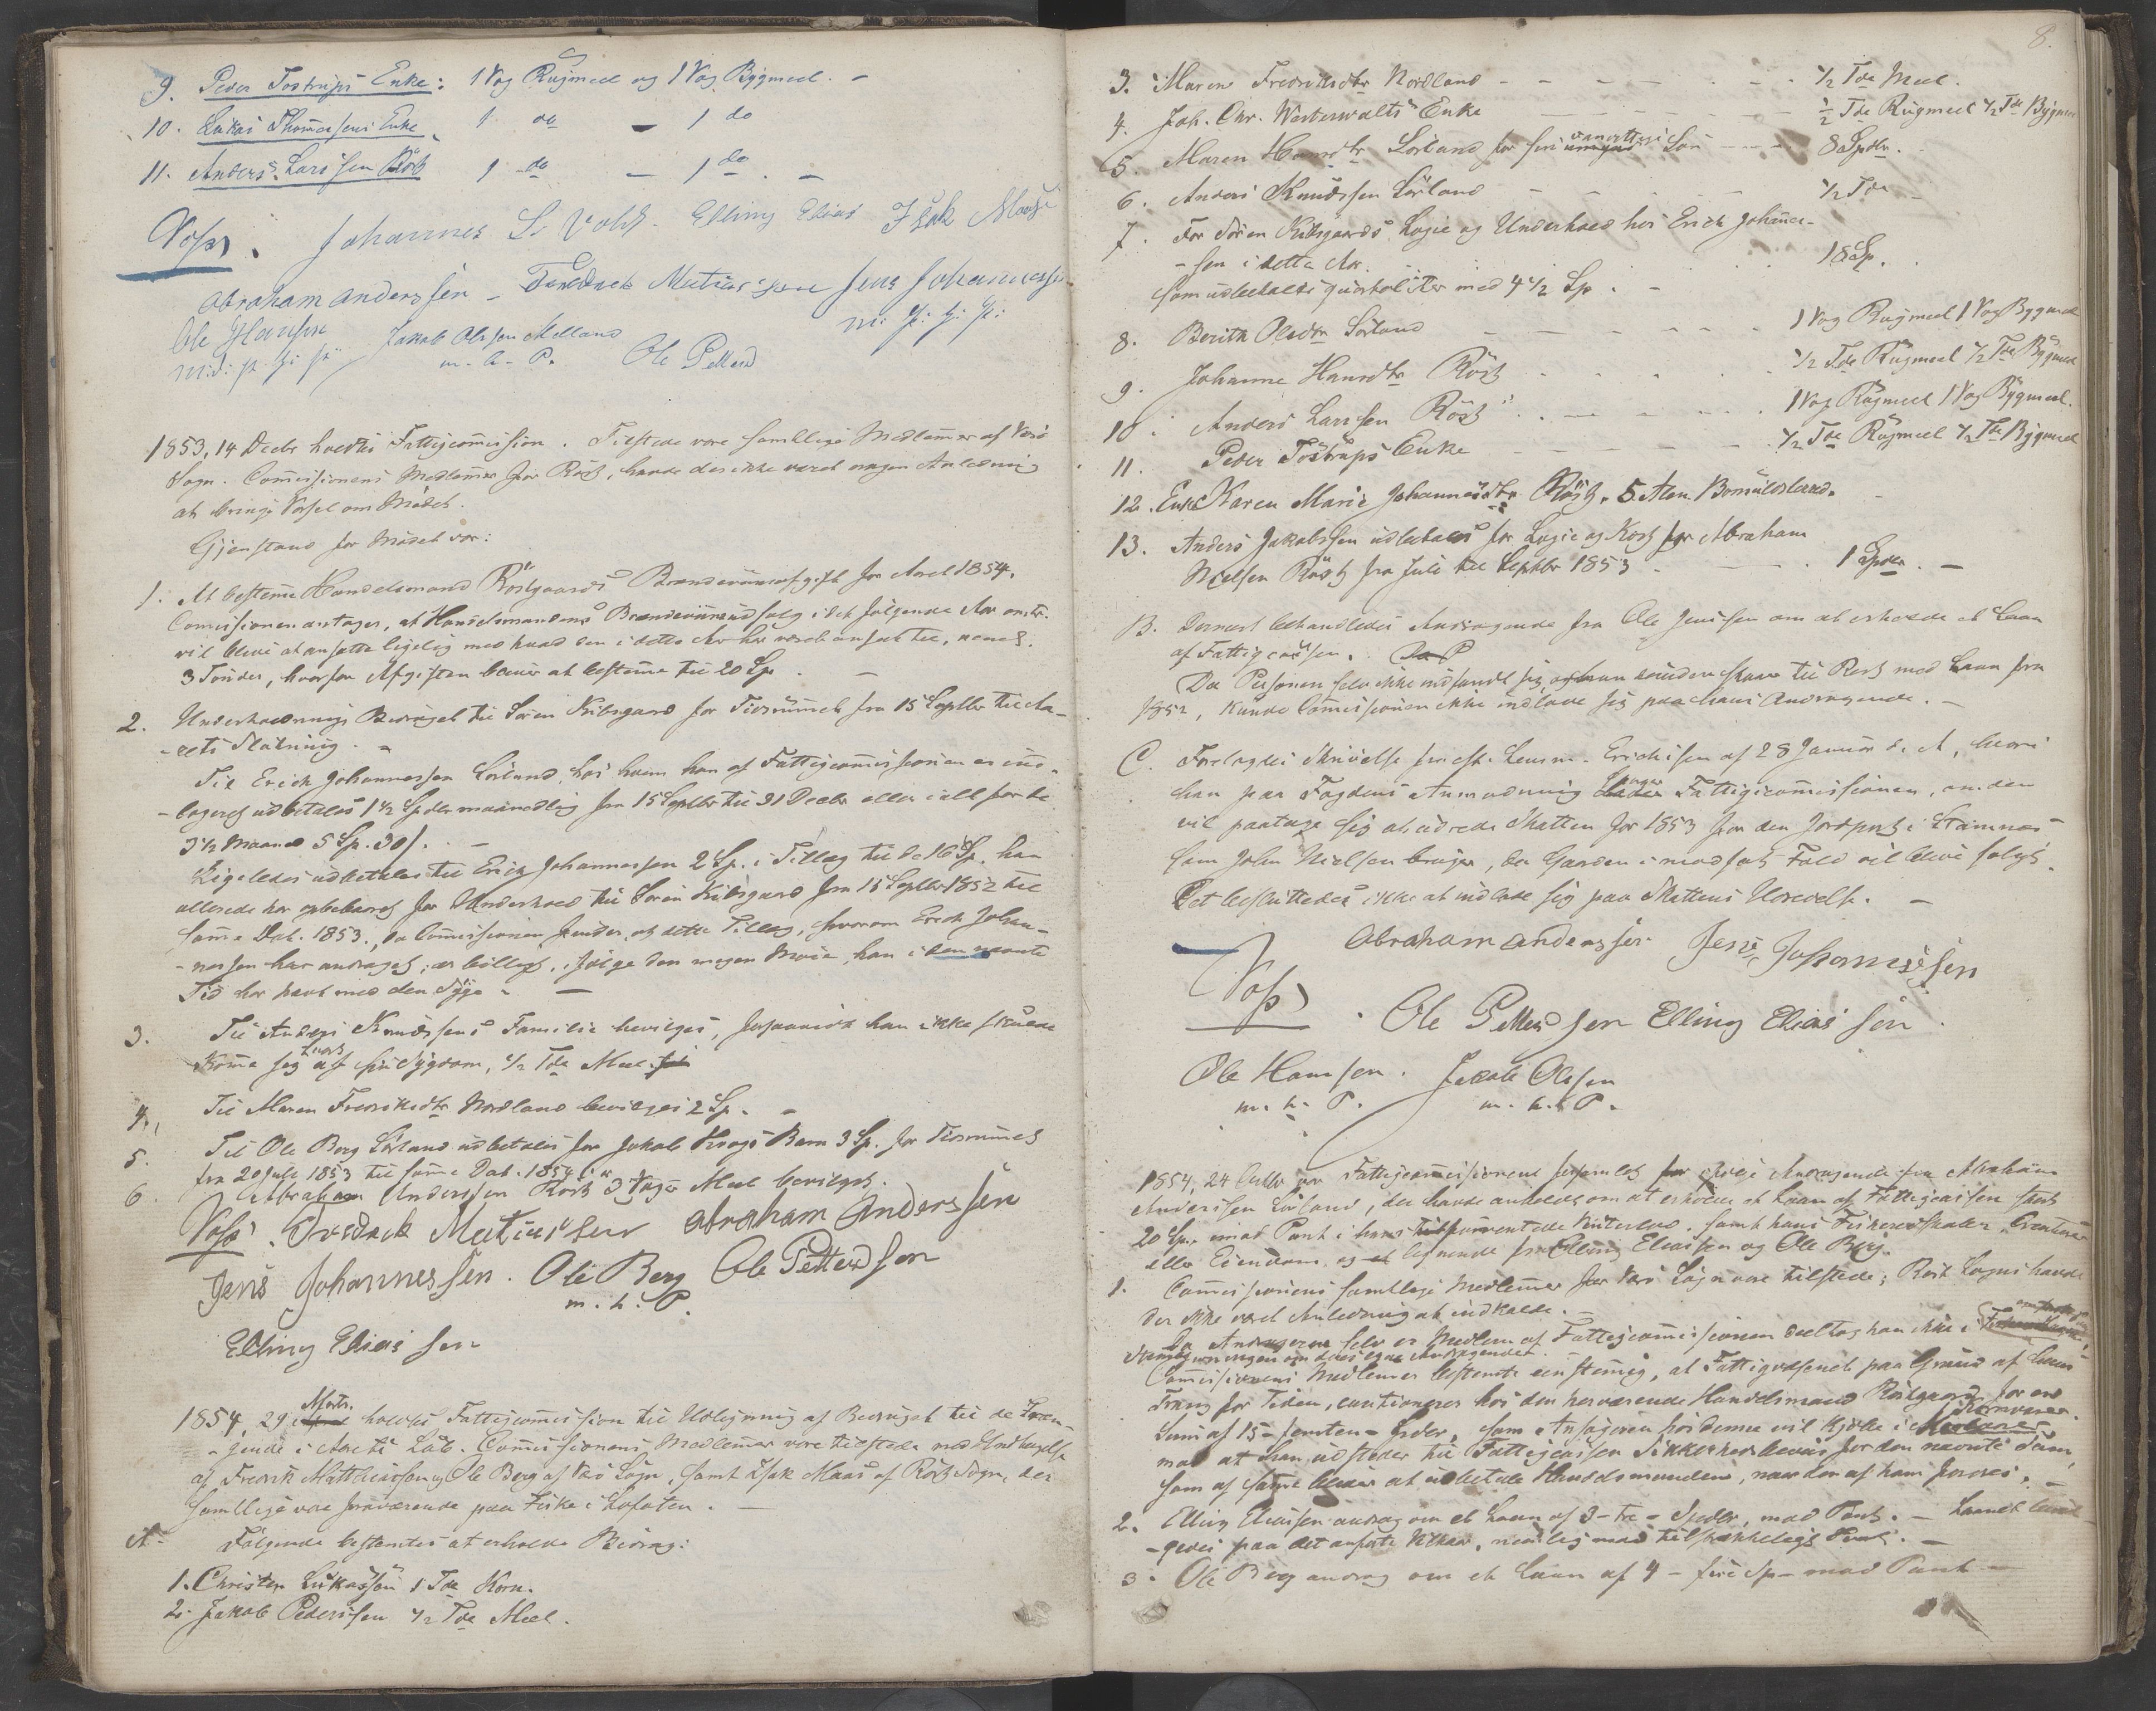 9. Peder Tostrups Enke: 1 Vog Rugmeel og 1 Vog Bygmeel. -
10. Lukas Thomassens Enke 1 do - 1 do
11. Anders Larssen Röst 1 do - 1 do. -
Voss. Johannes L. Elling Elias Isak Maas
Abraham Anderssen - Fredrick Matiassen Jens Johannessen
Ole Hansen Jakob Olsen m: p: f: p:
m: p: f: p: m. h. P. Ole Petters
1853, 14 Decbr holdtes Fattigcommission. Tilstede vare samtlige Medlemmer af Værö
Sogn. Commissionens Medlemmer for Röst, havde der ikke været nogen Anledning
at bringe Varsel om Mödet.
Gjenstand for Mödet var:
1. At bestemme Handelsmand Röstgaards Brændeviinsafgift for Aaret 1854.
Commissionen antager, at Handelsmandens Brændeviinsudsalg i det fölgende Aar omtr.
vil blive at ansætte ligelig med hvad den i dette Aar har været ansat til, nemlig
3 Tönder, hvorfor Afgiften bliver at bestemme til 20 Sp. -
2. Underholdnings Bidraget til Sören Kibsgaard for Tidsrummet fra 15 Septbr til Aa-
-rets Slutning. -
Til Erick Johannessen Sörland, hos hvem han af Fattigcommissionen er ind-
-logeret udbetales 1 1/2 Spdlr maanedlig fra 15 Septbr til 31 Decbr eller i alt for de
3 1/2 Maaned 5 Sp. 30 s. -
Ligeledes udbetales til Erick Johannessen 2 Sp. i Tillæg til de 16 Sp. han
allerede har oppebaaret for Underhold til Sören Kibsgaard fra 15 Septbr 1852 til
samme Dat. 1853, da Commissionen finder, at dette Tillæg, hvorom Erick Johan-
-nessen har andraget, er billigt, i fölge den megen Möie, han i den nævnte
Tid har havt med den Syge. -
3. Til Anders Knudssens Familie bevilges, forsaavidt han ikke skulde
komme sig snart af sin Sygdom, 1/2 Tde Meel.
4. Til Maren Fredriksdtr Nordland bevilges 2 Sp. -
5. Til Ole Berg Sörland udbetales for Jakob Krogs Barn 3 Sp. for Tidsrummet
fra 20 Juli 1853 til samme Dat. 1854.
6. Abraham Anderssen Röst 3 Voger Meel bevilget.
Voss. Fredrick Matiassen Abraham Anderssen
Jens Johannessen. Ole Berg Ole Petterssen
m. h. P.
Elling Eliassen
1854, 29 Marts. holdtes Fattigcommission til Udligning af Bidraget til de Træn-
-gende i Aarets Löb. Commissionens Medlemmer vare tilstede med Undtagelse
af Fredrik Matthiassen og Ole Berg af Værö Sogn, samt Isak Maas af Röst Sogn, der
samtlige vare fraværende paa Fiske i Lofoten. -
A. Fölgende bestemtes at erholde Bidrag:
1. Christen Lukassen 1 Tde Korn.
2. Jakob Pederssen 1/2 Tde Meel.
8.
3. Maren Fredriksdtr Nordland - 1/2 Tde Meel.
4. Joh. Chr. Westerwalts Enke - 1/2 Tde Rugmeel 1/2 Tde Bygmeel
5. Maren Hansdtr Sörland for sin vanvittige Sön - 8 Spdlr.
6. Anders Knudssen Sörland - 1/2 Tde -
7. For Sören Kibsgaards Logie og Underhold hos Erick Johannes-
-sen i dette Aar. 18 Sp.
som udbetales Qvartaliter med 4 1/2 Sp. -
8. Berith Olsdtr Sörland - 1 Vog Rugmeel 1 Vog Bygmeel
9. Johanne Hansdtr Röst - 1/2 Tde Rugmeel 1/2 Tde Bygmeel
10. Anders Larssen Röst - 1 Vog Rugmeel 1 Vog Bygmeel.
11. Peder Tostrups Enke - 1/2 Tde Rugmeel 1/2 Tde Bygmeel
12. Enke Karen Marie Johannesdtr Röst. 5 Alen Bomuldslærred.
13. Anders Jakobssen udbetales for Logie og Kost for Abraham
Nielsen Röst fra Juli til Septbr 1853 - 1 Spdlr. -
B. Dernæst behandledes Andragende fra Ole Jenssen om at erholde et Laan
af Fattigcassen.
Da Personen selv ikke indfandt sig, og han endnu staar til Rest med Laan fra
1852, kunde Commissionen ikke indlade sig paa hans Andragende. -
C. Forelagdes Skrivelse fra Lensm. Erichsen af 28 Januar d. A., hvori
han paa Fogdens Anmodning spörger Fattigcommissionen, om den
vil paatage sig at udrede Skatten for 1853 for den Jordpart i
som John Nielsen bruger, da Gaarden i modsat Fald vil blive solgt.
Det besluttedes ikke at indlade sig paa Skattens Udredelse. -
Abraham Anderssen Jens Johannessen
Voss. Ole Petterssen Elling Eliassen.
Ole Hanssen. Jakob Olssen
m. h. P. m. h. P.
1854, 24 Octbr var Fattigcommissionen forsamlet for Andragende fra Abraham
Anderssen Sörland, der havde anholdt om at erholde et Laan af Fattigcassen stort
20 Sp. imod Pant i hans, samt hans Fiskeredskaber, Creaturer
eller Eiendom, og lignende fra Elling Eliassen og Ole Berg.
1. Commissionens samtlige Medlemmer for Værö Sogn vare tilstede; Röst Sogns havde
der ikke været Anledning at indkalde. -
Da Andrageren selv er Medlem af Fattigcommissionen deeltog han ikke i
Commissionens Medlemmer bestemte eenstemmig, at Fattigvæsenet paa Grund af hans
Trang for Tiden, cautionerer hos den herværende Handelsmand Röstgaard for en
Sum af 15 - femten - Spdlr, som Ansögeren hos denne vil kjöbe i Kornvarer
mod at han udsteder til Fattigcassen Sikkerhedsbeviis for den nævnte Sum,
som af samme bliver at udbetale Handelsmanden, naar den af ham fordres. -
2. Elling Eliassen androg om et Laan af 3 - tre - Spdlr, mod Pant. - Laanet bevil-
-gedes paa det anförte Vilkaar, nemlig mod tilstrækkeligt Pant. -
3. Ole Berg androg om et Laan af 4 - fire Sp - mod Pant -